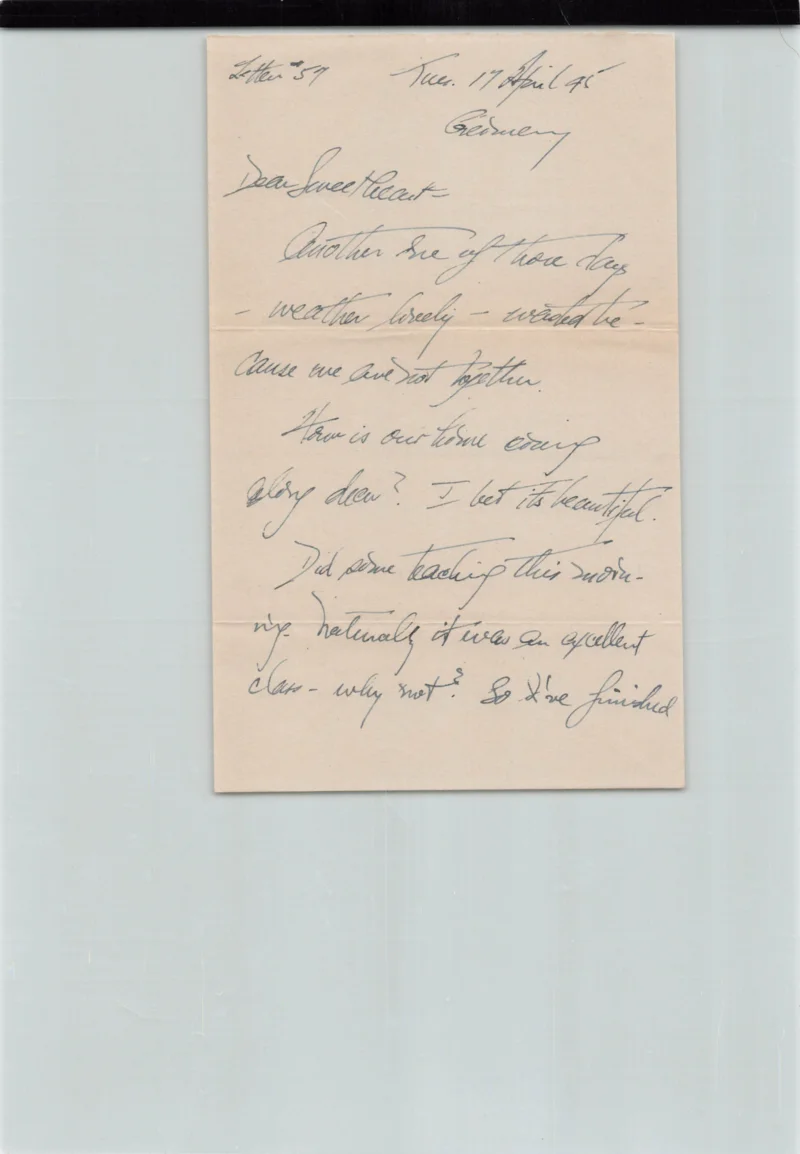 Letter #59
Tues. 17 April 45
Germany
Dear Sweetheart-
Another one of those days
- weather lovely - wasted be-
cause we are not together.
How is our home coming
along dear? I bet its beautiful.
Did some teaching this morn-
ing. Naturally it was an excellent
class- why not? So I've finished